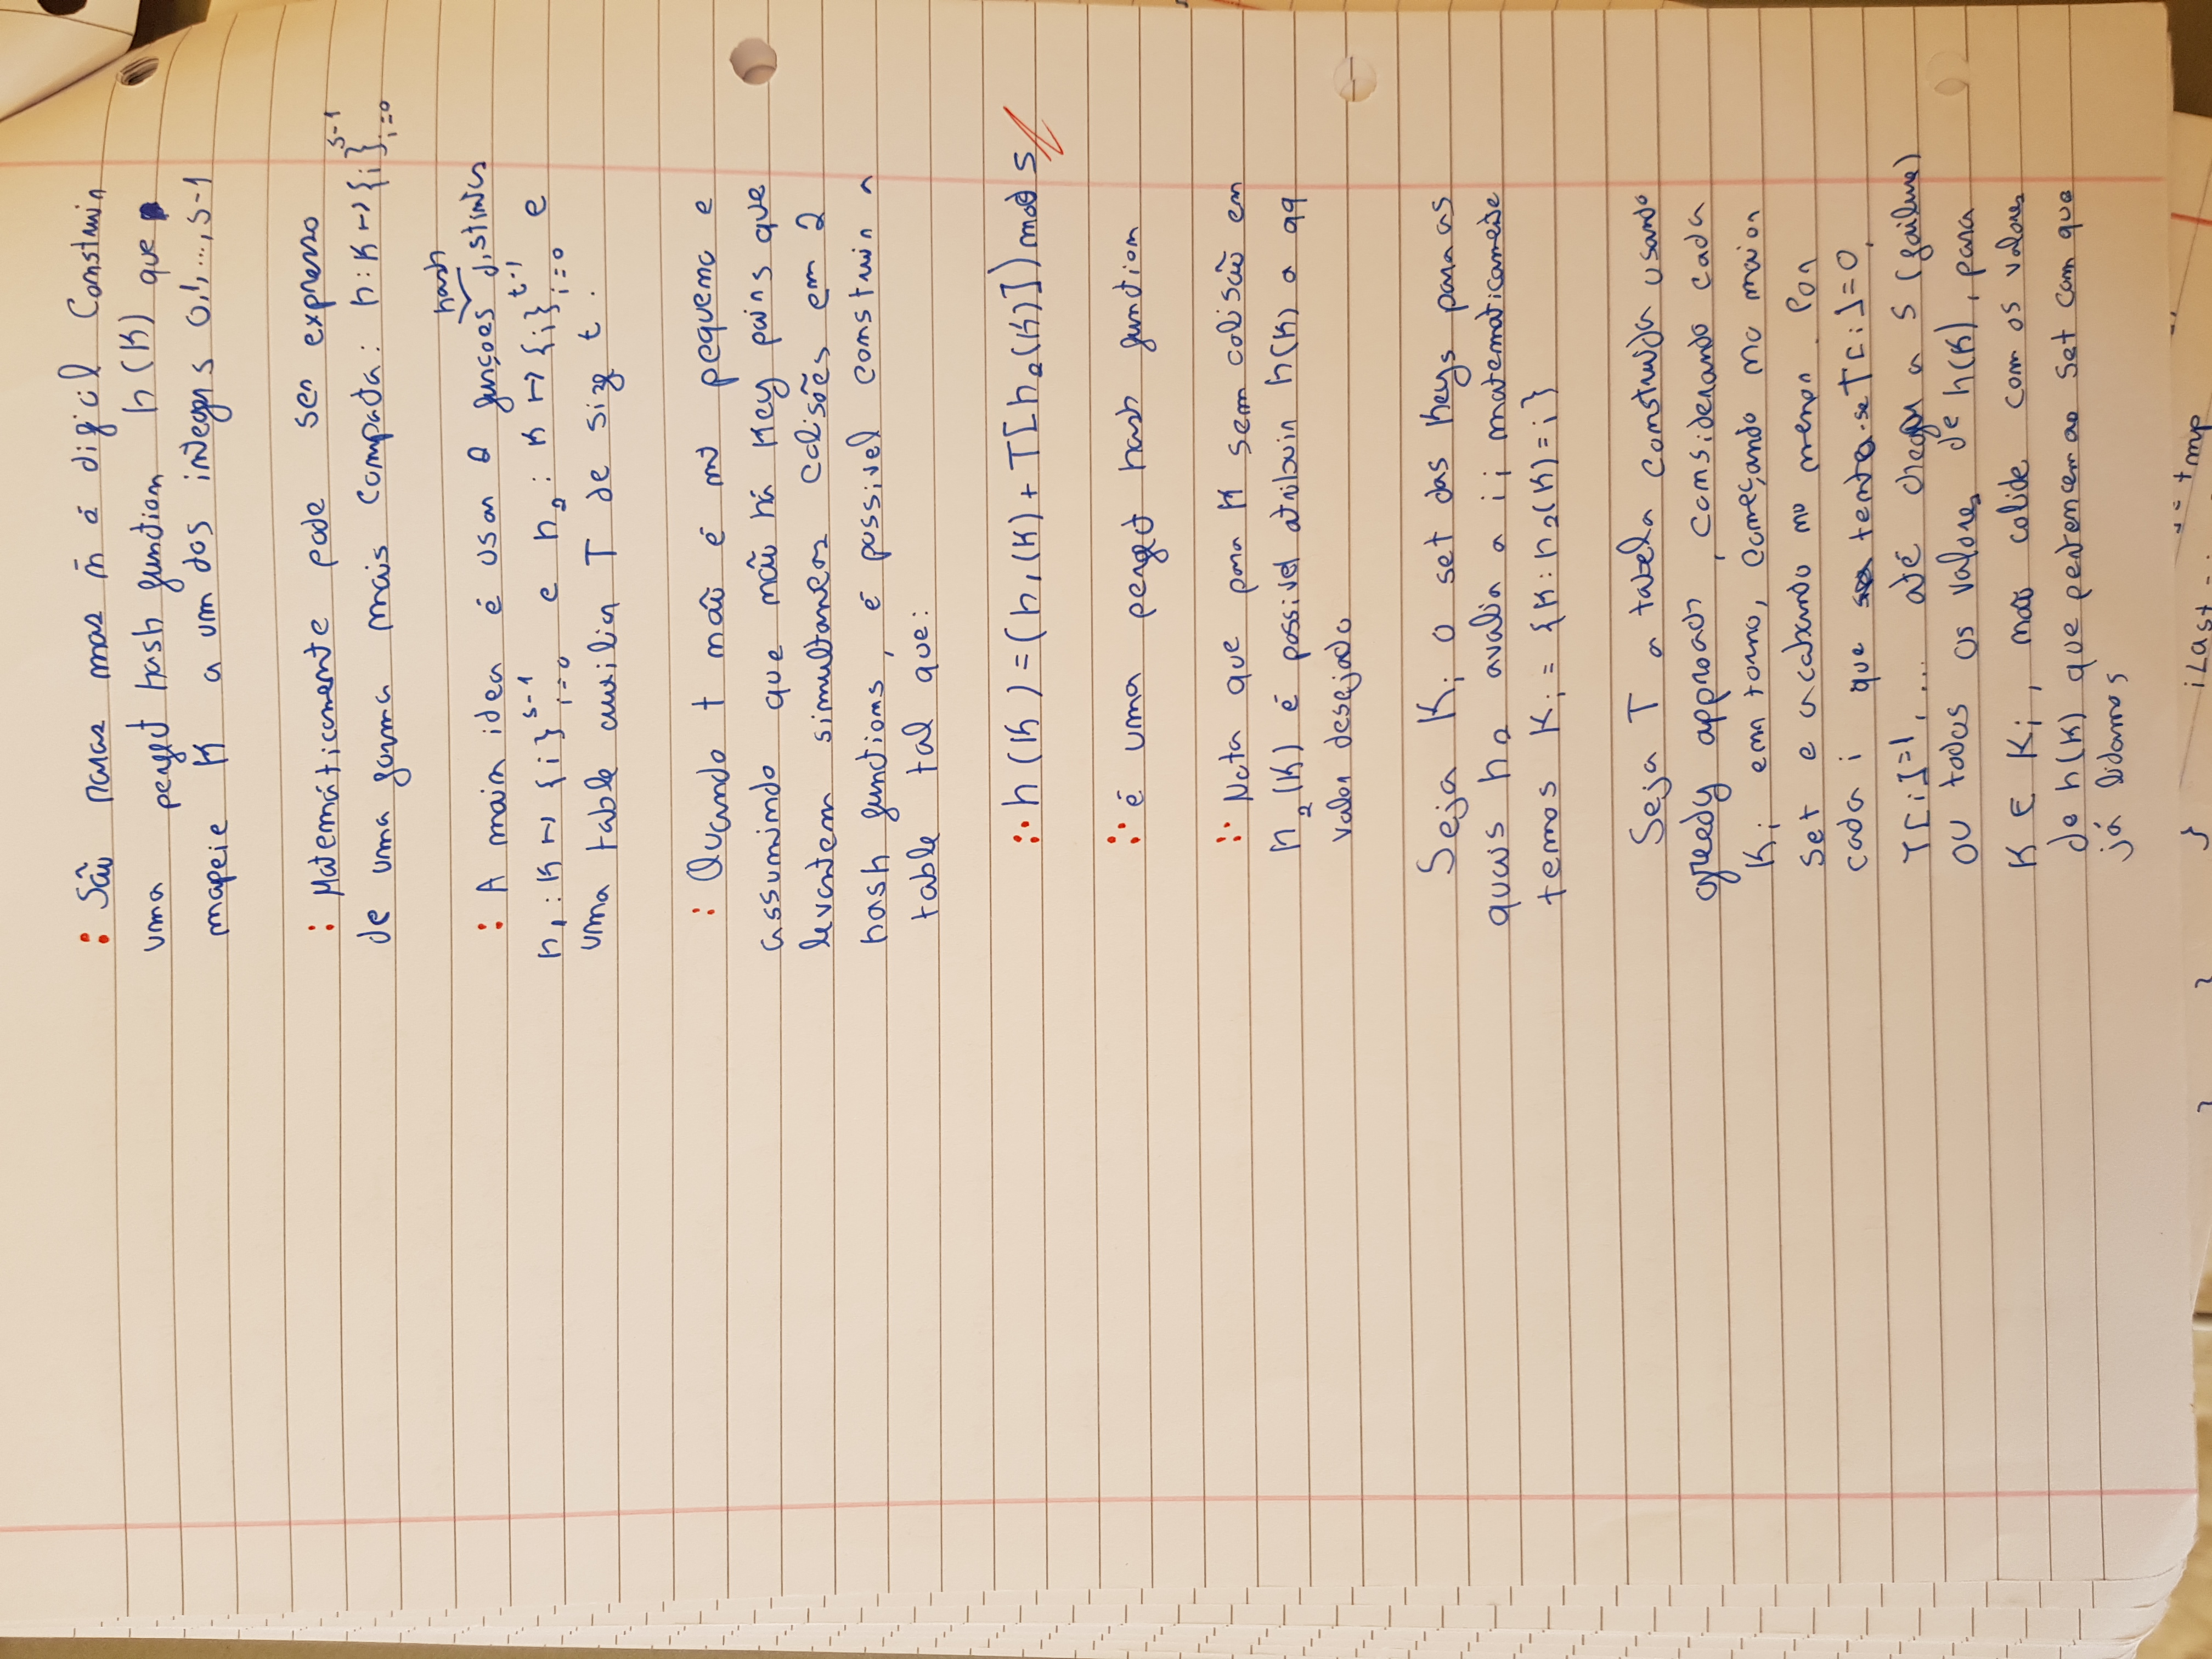 : São raras mas ñ é dificil Construir
uma perfect hash function h(K) que
mapeie K a um dos integers 0,1,...,s-1
: Matemáticamente pode ser expresso
de uma forma mais compacta: h: K ↦ {i}^{s-1}_{i=0}
hash
: A main idea é usar 2 funções distintas
h₁ : K ↦ {i}^{s-1}_{i=0} e h₂ : K ↦ {i}^{t-1}_{i=0} e
uma table auxiliar T de size t.
: Quando t não é mt pequeno e
assumindo que não há Key pairs que
levantem simultaneas colisões em 2
hash functions, é possivel construir a
table tal que:
∴ h(K) = (h₁(K) + T[h₂(K)]) mod s
∵ é uma perfect hash function
∵ Nota que para K sem colisão em
h₂(K) é possivel atribuir h(K) a qq
valor desejado
Seja Kᵢ o set das Keys para as
quais h₂ avalia a i; matematicamente
temos Kᵢ = {K : h₂(K) = i}
Seja T a tabela construída usando
greedy approach, considerando cada
Kᵢ em torno, começando no maior
set e acabando no menor. Por
cada i que tenta-se T[i]=0,
T[i]=1, ... até chegar a s (failure)
ou todos os valores de h(K), para
K ∈ Kᵢ, não colide com os valores
de h(K) que pertencem ao set com que
já lidamos
}
iLast
tmp